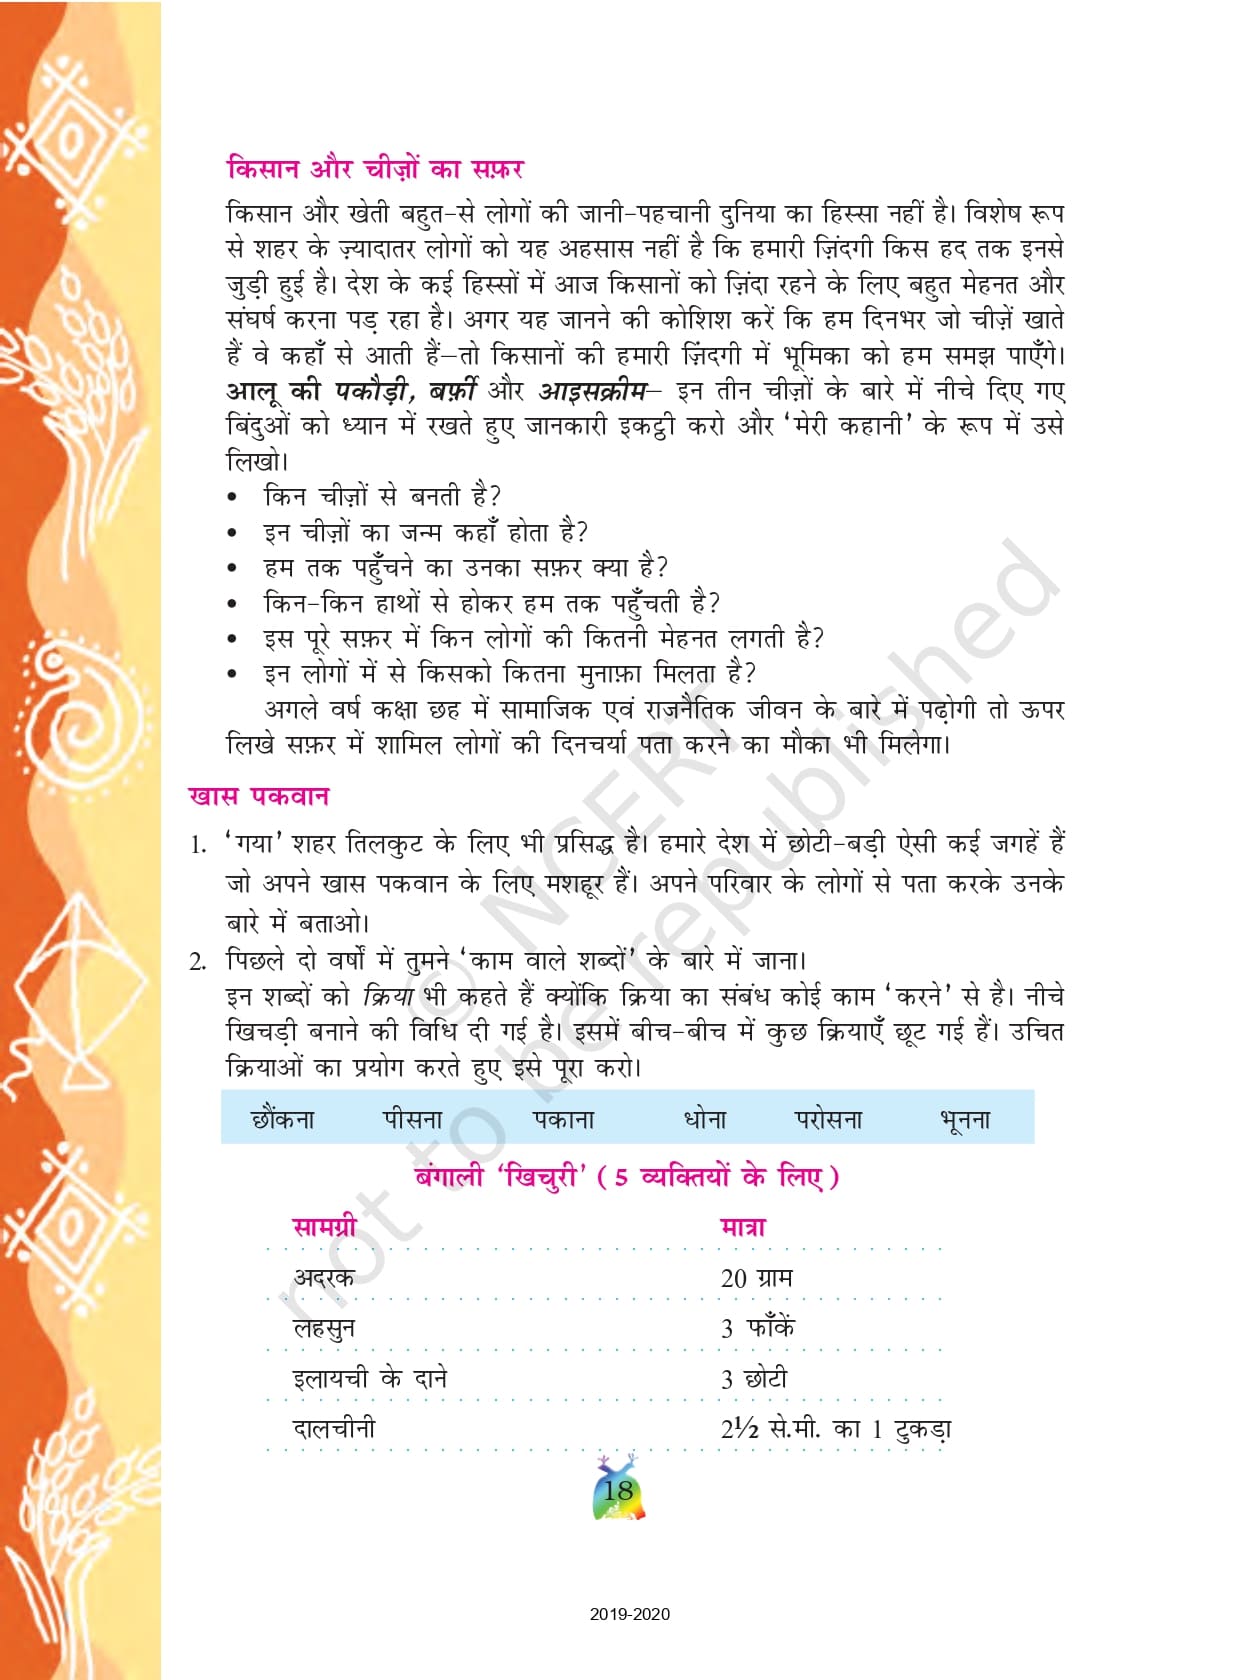 किसान और चीज़ों का सफ़र
किसान और खेती बहुत-से लोगों की जानी-पहचानी दुनिया का हिस्सा नहीं है। विशेष रूप
से शहर के ज़्यादातर लोगों को यह अहसास नहीं है कि हमारी ज़िंदगी किस हद तक इनसे
जुड़ी हुई है। देश के कई हिस्सों में आज किसानों को ज़िंदा रहने के लिए बहुत मेहनत और
संघर्ष करना पड़ रहा है। अगर यह जानने की कोशिश करें कि हम दिनभर जो चीज़ें खाते
हैं वे कहाँ से आती हैं–तो किसानों की हमारी ज़िंदगी में भूमिका को हम समझ पाएँगे।
आलू की पकौड़ी, बर्फ़ी और आइसक्रीम– इन तीन चीज़ों के बारे में नीचे दिए गए
बिंदुओं को ध्यान में रखते हुए जानकारी इकट्ठी करो और ‘मेरी कहानी’ के रूप में उसे
लिखो।
• किन चीज़ों से बनती है?
• इन चीज़ों का जन्म कहाँ होता है?
• हम तक पहुँचने का उनका सफ़र क्या है?
• किन-किन हाथों से होकर हम तक पहुँचती है?
• इस पूरे सफ़र में किन लोगों की कितनी मेहनत लगती है?
• इन लोगों में से किसको कितना मुनाफ़ा मिलता है?
अगले वर्ष कक्षा छह में सामाजिक एवं राजनैतिक जीवन के बारे में पढ़ोगी तो ऊपर
लिखे सफ़र में शामिल लोगों की दिनचर्या पता करने का मौका भी मिलेगा।
खास पकवान
1. ‘गया’ शहर तिलकुट के लिए भी प्रसिद्ध है। हमारे देश में छोटी-बड़ी ऐसी कई जगहें हैं
जो अपने खास पकवान के लिए मशहूर हैं। अपने परिवार के लोगों से पता करके उनके
बारे में बताओ।
2. पिछले दो वर्षों में तुमने ‘काम वाले शब्दों’ के बारे में जाना।
इन शब्दों को क्रिया भी कहते हैं क्योंकि क्रिया का संबंध कोई काम ‘करने’ से है। नीचे
खिचड़ी बनाने की विधि दी गई है। इसमें बीच-बीच में कुछ क्रियाएँ छूट गई हैं। उचित
क्रियाओं का प्रयोग करते हुए इसे पूरा करो।
छौंकना पीसना पकाना धोना परोसना भूनना
बंगाली ‘खिचुरी’ ( 5 व्यक्तियों के लिए )
सामग्री मात्रा
अदरक 20 ग्राम
लहसुन 3 फाँकें
इलायची के दाने 3 छोटी
दालचीनी 2½ से.मी. का 1 टुकड़ा
18
2019-2020
© NCERT
not to be republished